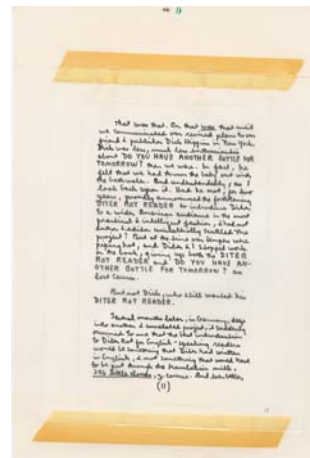 That was that. On that note that we'd
we communicated our revised plans to our
friend & publisher Dick Higgins in New York.
Dick was less, much less enthusiastic
about DO YOU HAVE ANOTHER BOTTLE FOR
TOMORROW? than we were. In fact, he
felt that we had thrown the baby out with
the bathwater. And understandably, as I
look back upon it. Had he not, for two
years, proudly announced the forthcoming
DITER ROT READER to introduce Diter
to a wider American audience in the most
practical & intelligent fashion, & had not
author & editor unilaterally scuttled the
project? But at the time our tempers were
piping hot, and Diter & I stopped work
on the book, giving up both the DITER
ROT READER and DO YOU HAVE AN-
OTHER BOTTLE FOR TOMORROW? as
lost causes.
But not Dick, who still wanted his
DITER ROT READER.
Several months later, in Germany, deep
into another & unrelated project, it suddenly
occurred to me that the best introduction
to Diter Rot for English-speaking readers
would be something that Diter had written
in English, & not something that would have
to be put through the translation mill.
246 little clouds, of course. And even better,
(11)